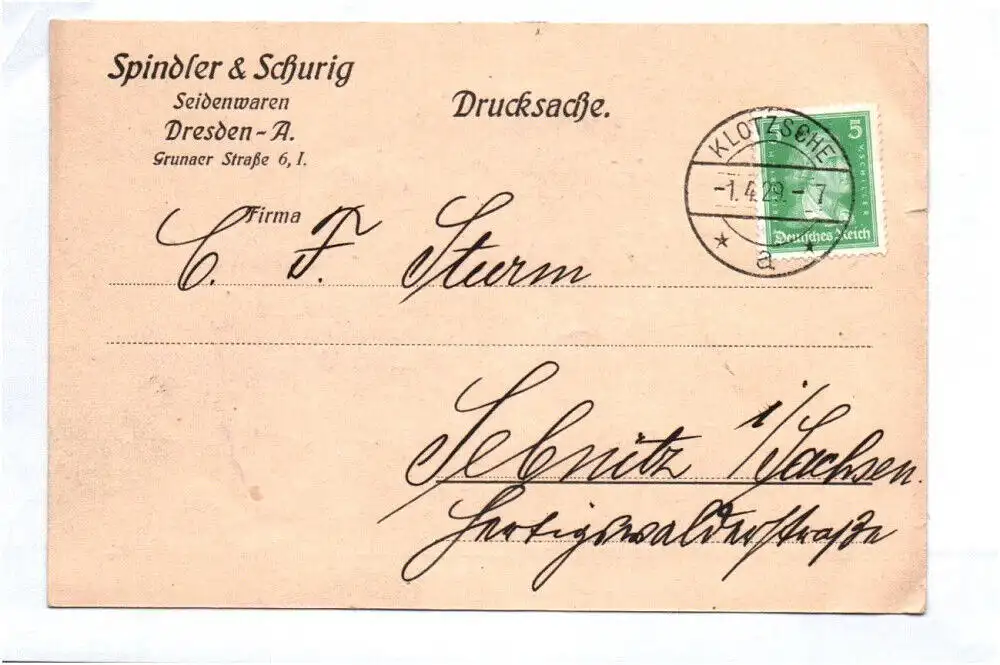 Spindler & Schurig
Seidenwaren
Dresden-A.
Grunaer Straße 6, I.
Drucksache.
KLOTZSCHE
-1.4.29.-7
a
5 5
SCHILLER
Deutsches Reich
Firma
C. F. Sturm
Sebnitz i/Sachsen.
Hertigswalderstraße